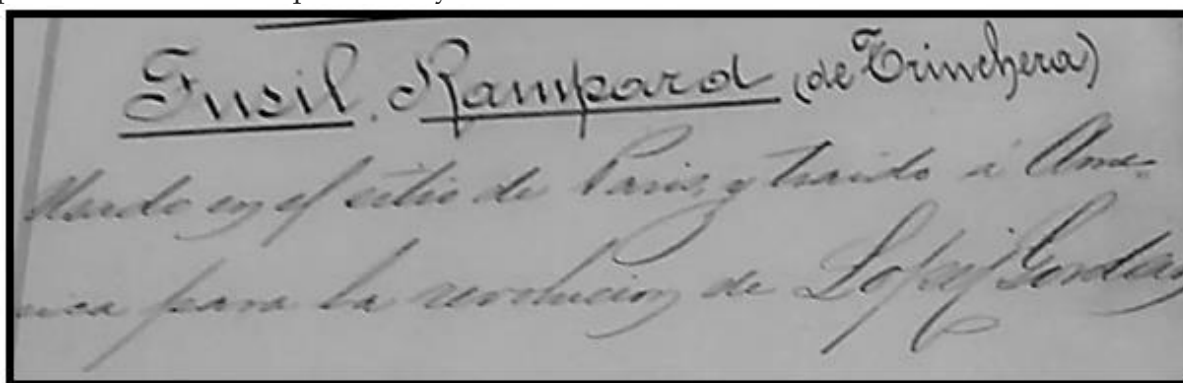 Fusil. Rampard (de Trinchera)
Usado en el sitio de Paris, y traido á Ame-
rica para la revolucion de Lopez Jordan